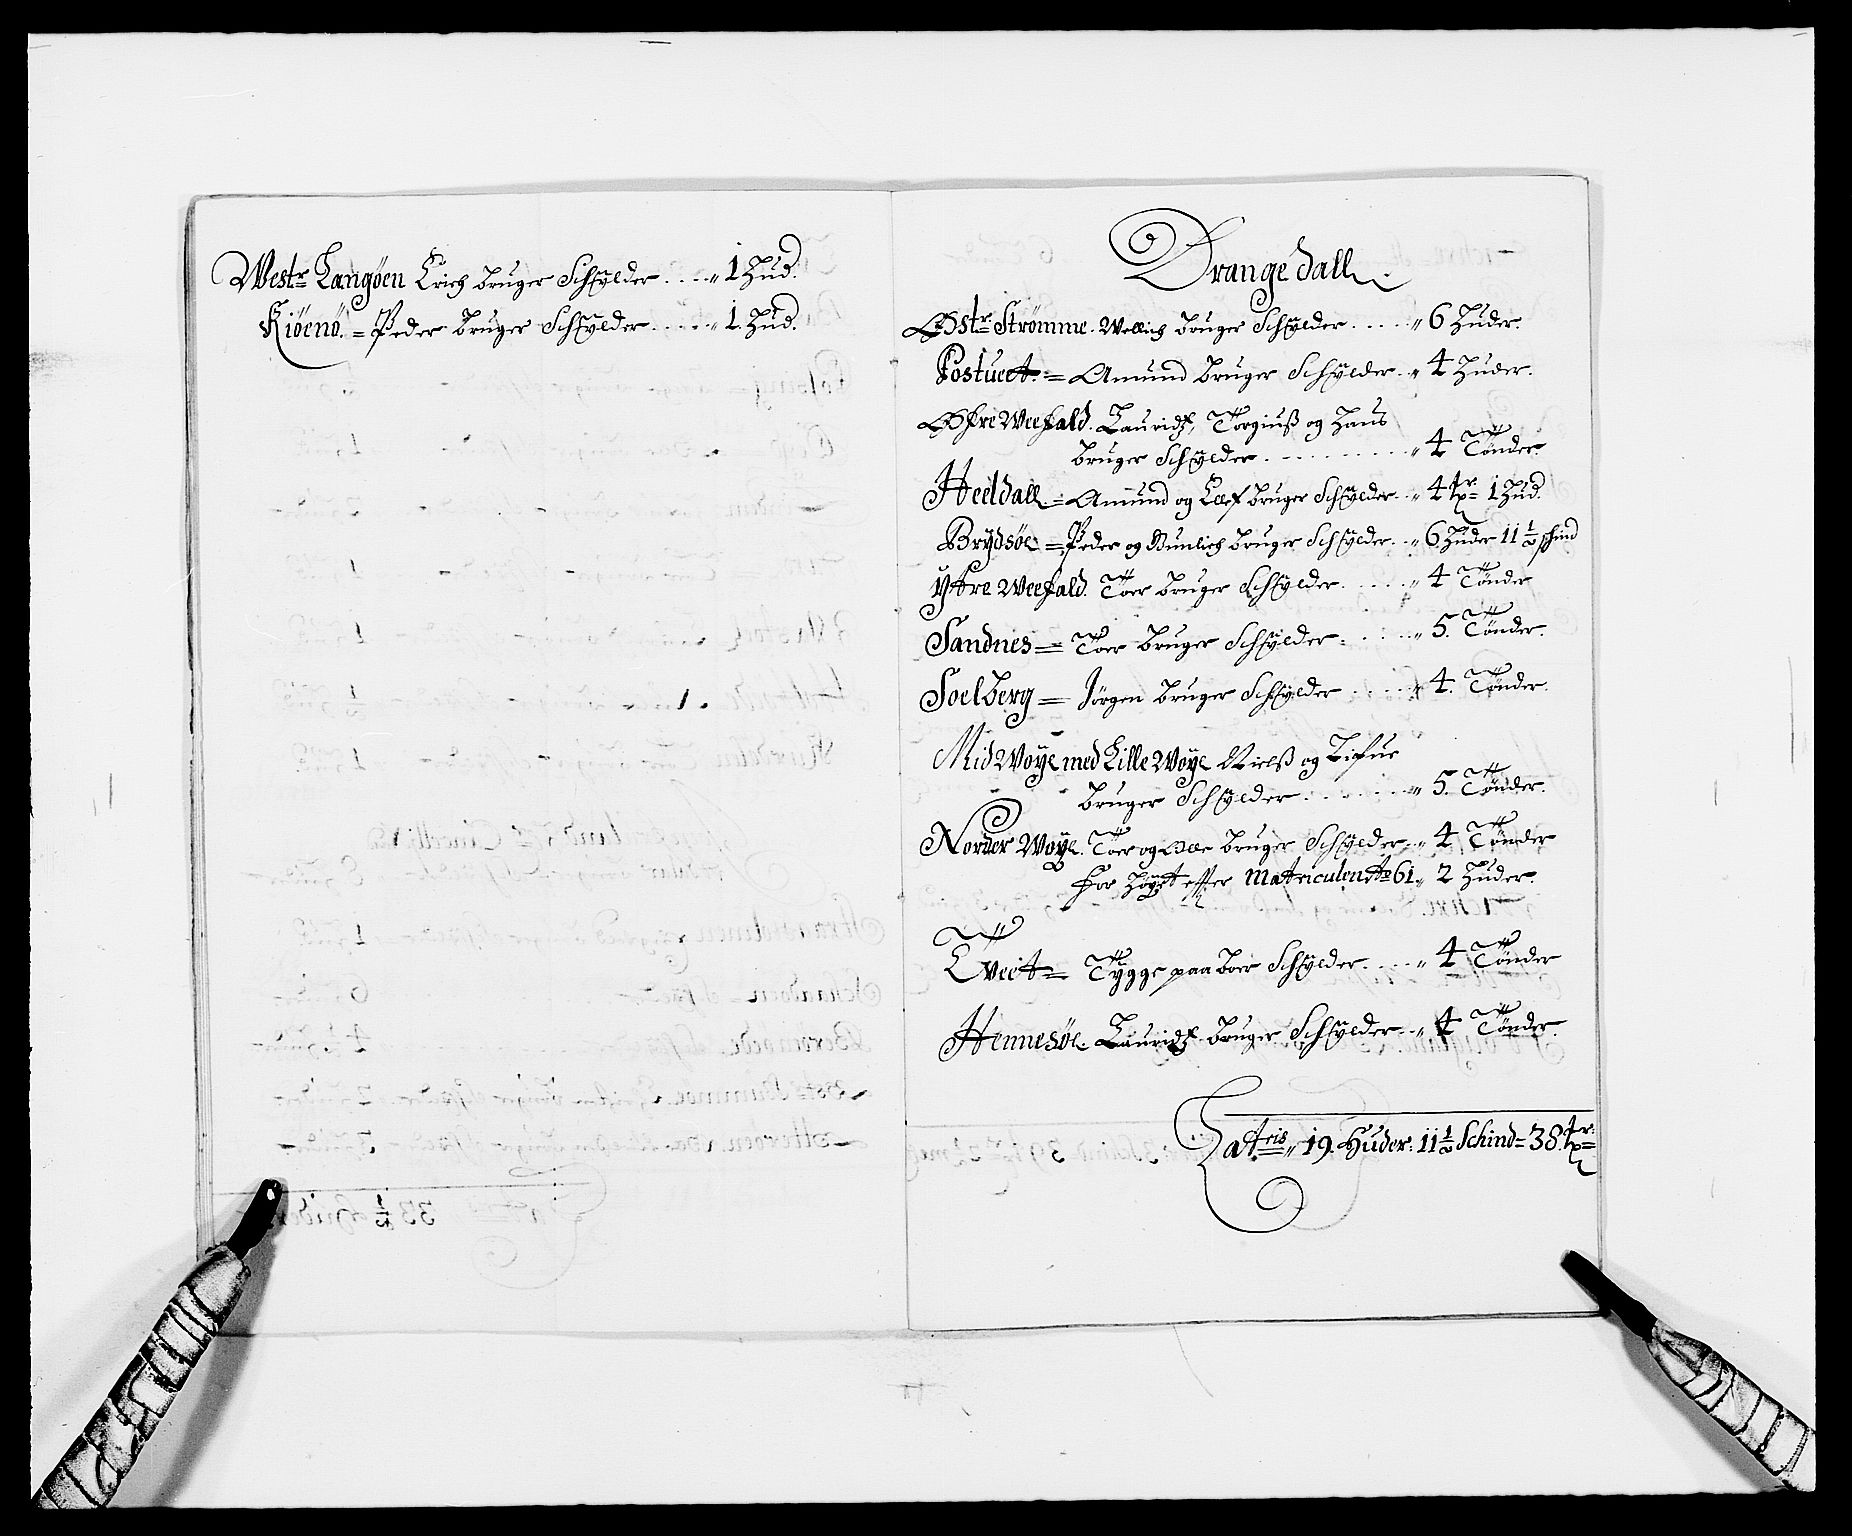 Westr Langøen Erich bruger Schylder . . . . „ 1 Hud.
Kiøenø. = Peder bruger Schylder . . . . . „ 1. Hud.
Drangedall.
Østr Strømme. Wellich bruger Schylder . . . . . „ 6 Huder.
Postuet. = Amund bruger Schylder . „ 4 Huder.
Øfre Weefald. Lauridz, Torgiuß og Hans
bruger Schylder . . . . . . . . . . . „ 4 Tønder.
Heeldall. = Amund og Oluf bruger Schylder . . „ 4 tr 1 Hud.
Brydsøe = Peder og Gunlich bruger Schylder . . „ 6 Huder 11 1/2 schind
Yttre Weefald. Toer bruger Schylder . . . . . „ 4 Tønder
Sandnes = Toer bruger Schylder . . . . . „ 5. Tønder.
Soelberg = Jørgen bruger Schylder . . . . . „ 4. Tønder.
Mid Woye med Lille Woye Nielß og
bruger Schylder . . . . . . . . „ 5. Tønder.
Norder Woye. Toer og Olle bruger Schylder . „ 4 Tønder
for Høyet effter Matriculen Ao 61 „ 2 Huder.
Tveet = Tygge paa boer Schylder . . . . „ 4 Tønder
Hennesøe. Lauridz bruger Schylder . . „ 4 Tønder.
Latris „ 19. Huder: 11 1/2 Schind = 38. tr: